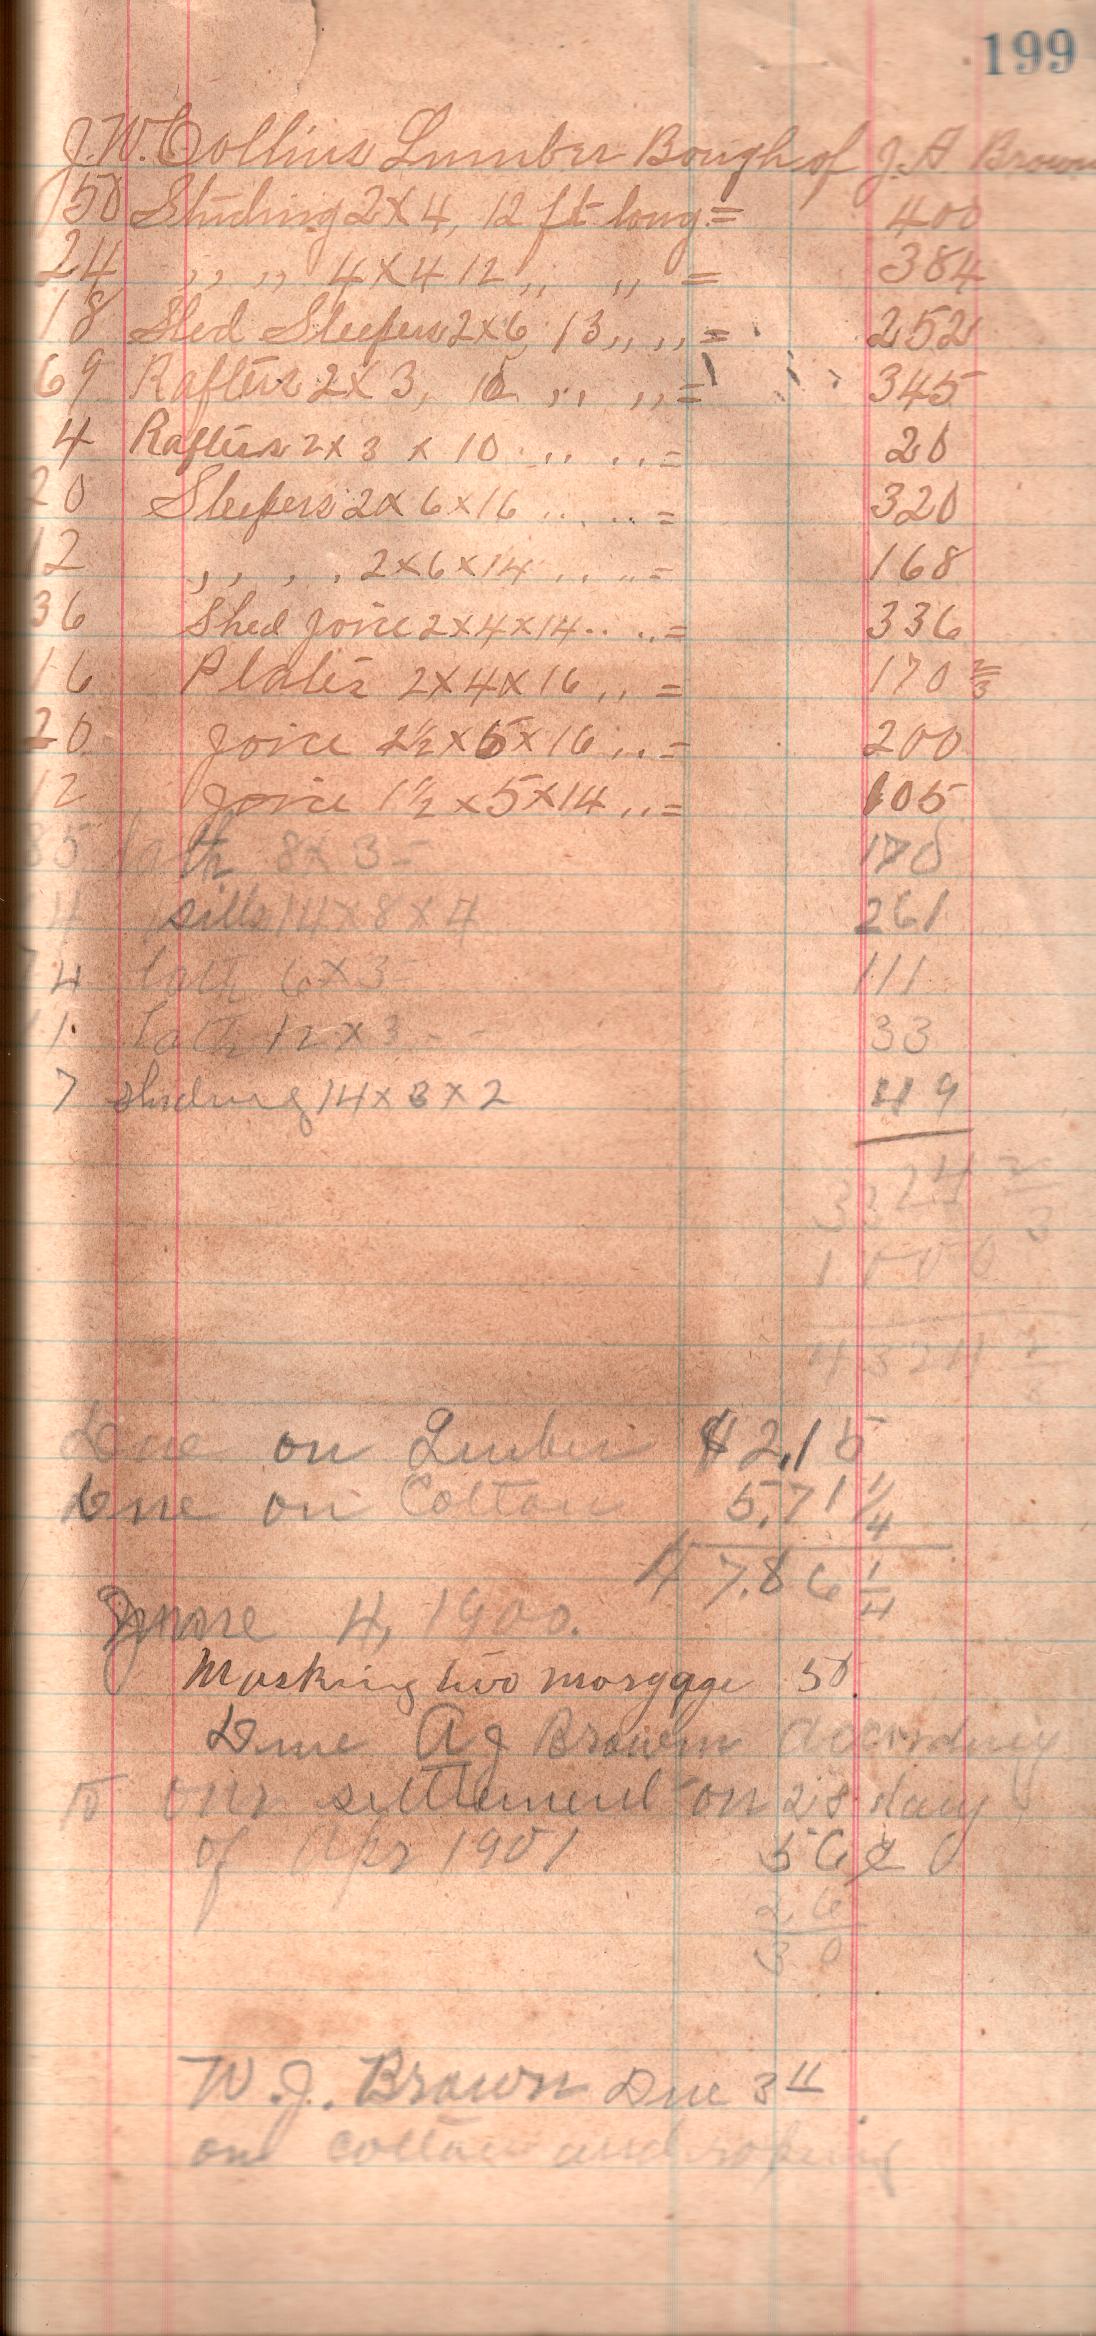 199
J.W. Collins Lumber Bough of J.A Brown
50 Studing 2x4, 12 ft long = 400
24 ,, ,, 4x4 12 ,, ,, = 384
18 Shed Sleepers 2x6, 13 ,, ,, = 252
69 Rafters 2x3, 10 ,, ,, = 345
4 Rafters 2x3 x 10 ,, ,, = 20
20 Sleepers 2x6x16 ,, ,, = 320
12 ,, ,, 2x6x14 ,, ,, = 168
36 Shed Joice 2x4x14 ,, ,, = 336
16 Plates 2x4x16 ,, = 170 2/3
20 Joice 1½x5x16 ,, = 200
12 Joice 1½x5x14 ,, = 105
85 lath 8x3 = 170
sills 14x8x4 261
74 lath 6x3 = 111
11 lath 12x3 - - 33
7 studing 14x3x2 49
3324 2/3
1000
4324 2/3
Due on Lumber $2.15
Due on Cotton 5.71 1/4
$7.86 1/4
4, 1900.
Making two morggge 50
Due A J Brown According
to our settlement on 28 day
of Apr 1901 56¢
26
30
W.J. Brown Due 3 11
on cotton and